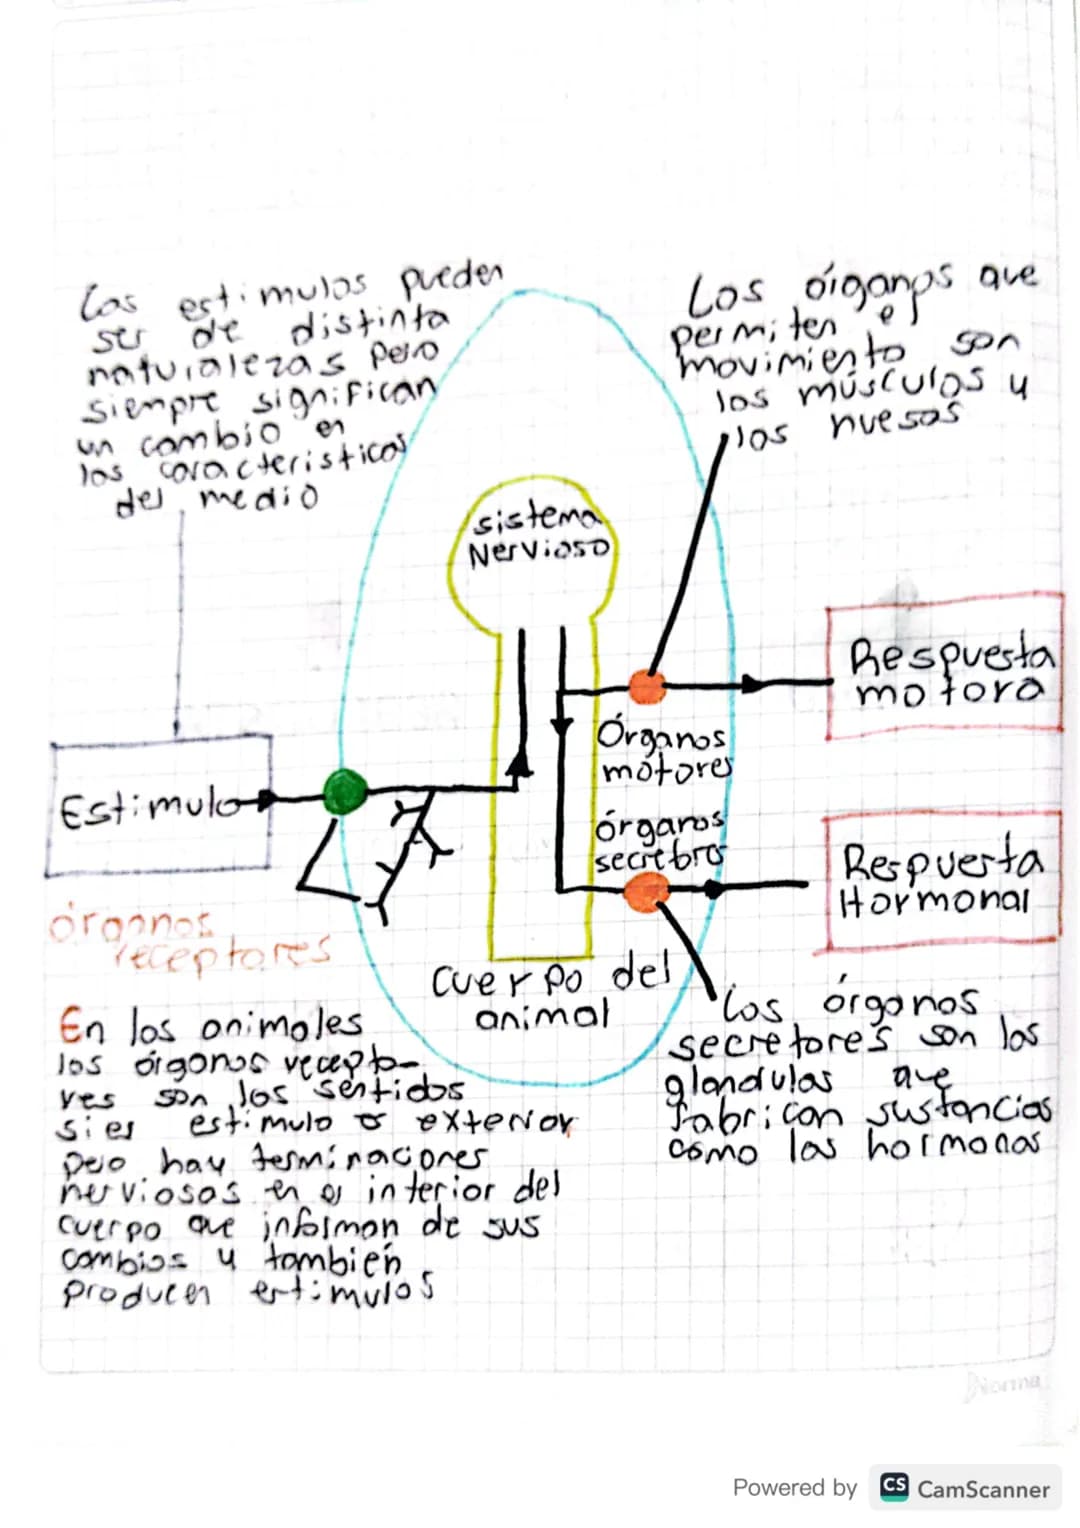 Los estimulos pueden
ser de distinta
naturalezas pero
siempre significan
un cambio en
las caracteristicas
del medio
Los órganos que
permiten el
movimiento son
los músculos y
los huesos
sistema
Nervioso
Respuesta
motora
Órganos
motores
Estimulo
órganos
secretors
Respuesta
Hormonal
órganos
receptores
Cuerpo del
animal
En los animales
los órganos recepto-
res son los sentidos
si es estimulo exterior
pero hay terminaciones
nerviosas en el interior del
cuerpo que informan de sus
cambios y también
producen estimulos
Los órganos
secretores son las
glandulas que
fabrican sustancias
como las hormonas
Norma
Powered by CS CamScanner